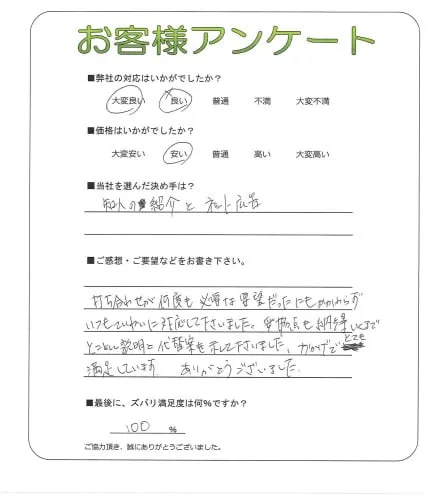 お客様アンケート
■弊社の対応はいかがでしたか?
大変良い 良い 普通 不満 大変不満
■価格はいかがでしたか?
大変安い 安い 普通 高い 大変高い
■当社を選んだ決め手は?
知人の紹介と ネット広告
■ご感想・ご要望などをお書き下さい。
打ち合わせが何度も必要な要望だったにもかかわらず
いつもていねいに対応して下さいました。変換点も納得いくまで
とことん説明と代替案を示して下さいました。おかげで とても
満足しています。 ありがとうございました。
■最後に、ズバリ満足度は何%ですか?
100 %
ご協力頂き、誠にありがとうございました。